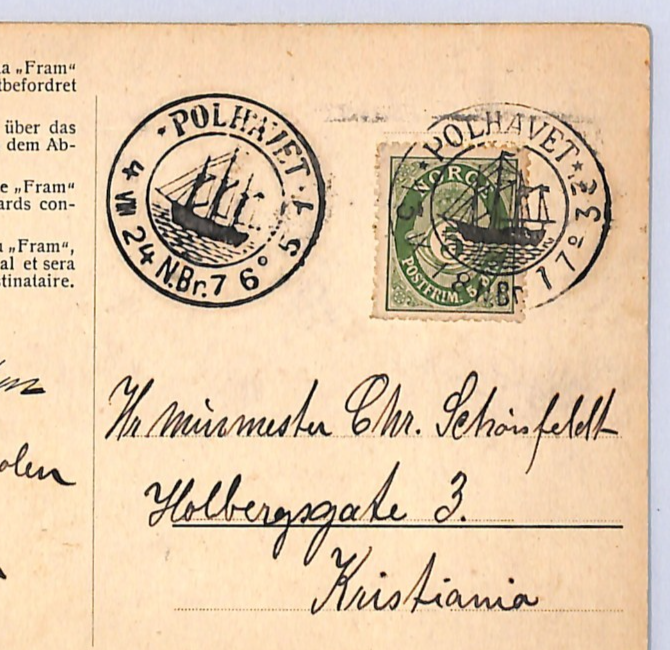 a „Fram“
tbefordret
über das
dem Ab-
e „Fram“
ards con-
„Fram“,
al et sera
tinataire.
olen
* POLHAVET
4 VIII 24 N.Br. 76°
* POLHAVET *
N.Br. 77°
NORGE
POSTFRIM.
Hr murmester Chr. Schönsfeldt
Holbergsgate 3.
Kristiania